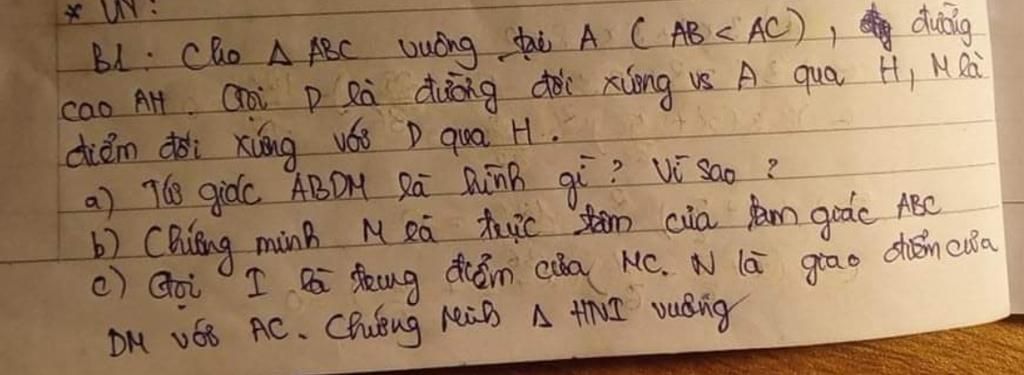 * LV:
B1: Cho Δ ABC vuông tại A (AB < AC), đường
cao AH. Gọi D là đường đối xứng vs A qua H, M là
điểm đối xứng với D qua H.
a) Tứ giác ABDM là hình gì? Vì sao?
b) Chứng minh M là trực tâm của tam giác ABC
c) Gọi I là trung điểm của MC. N là giao điểm của
DM với AC. Chứng Minh Δ HNI vuông